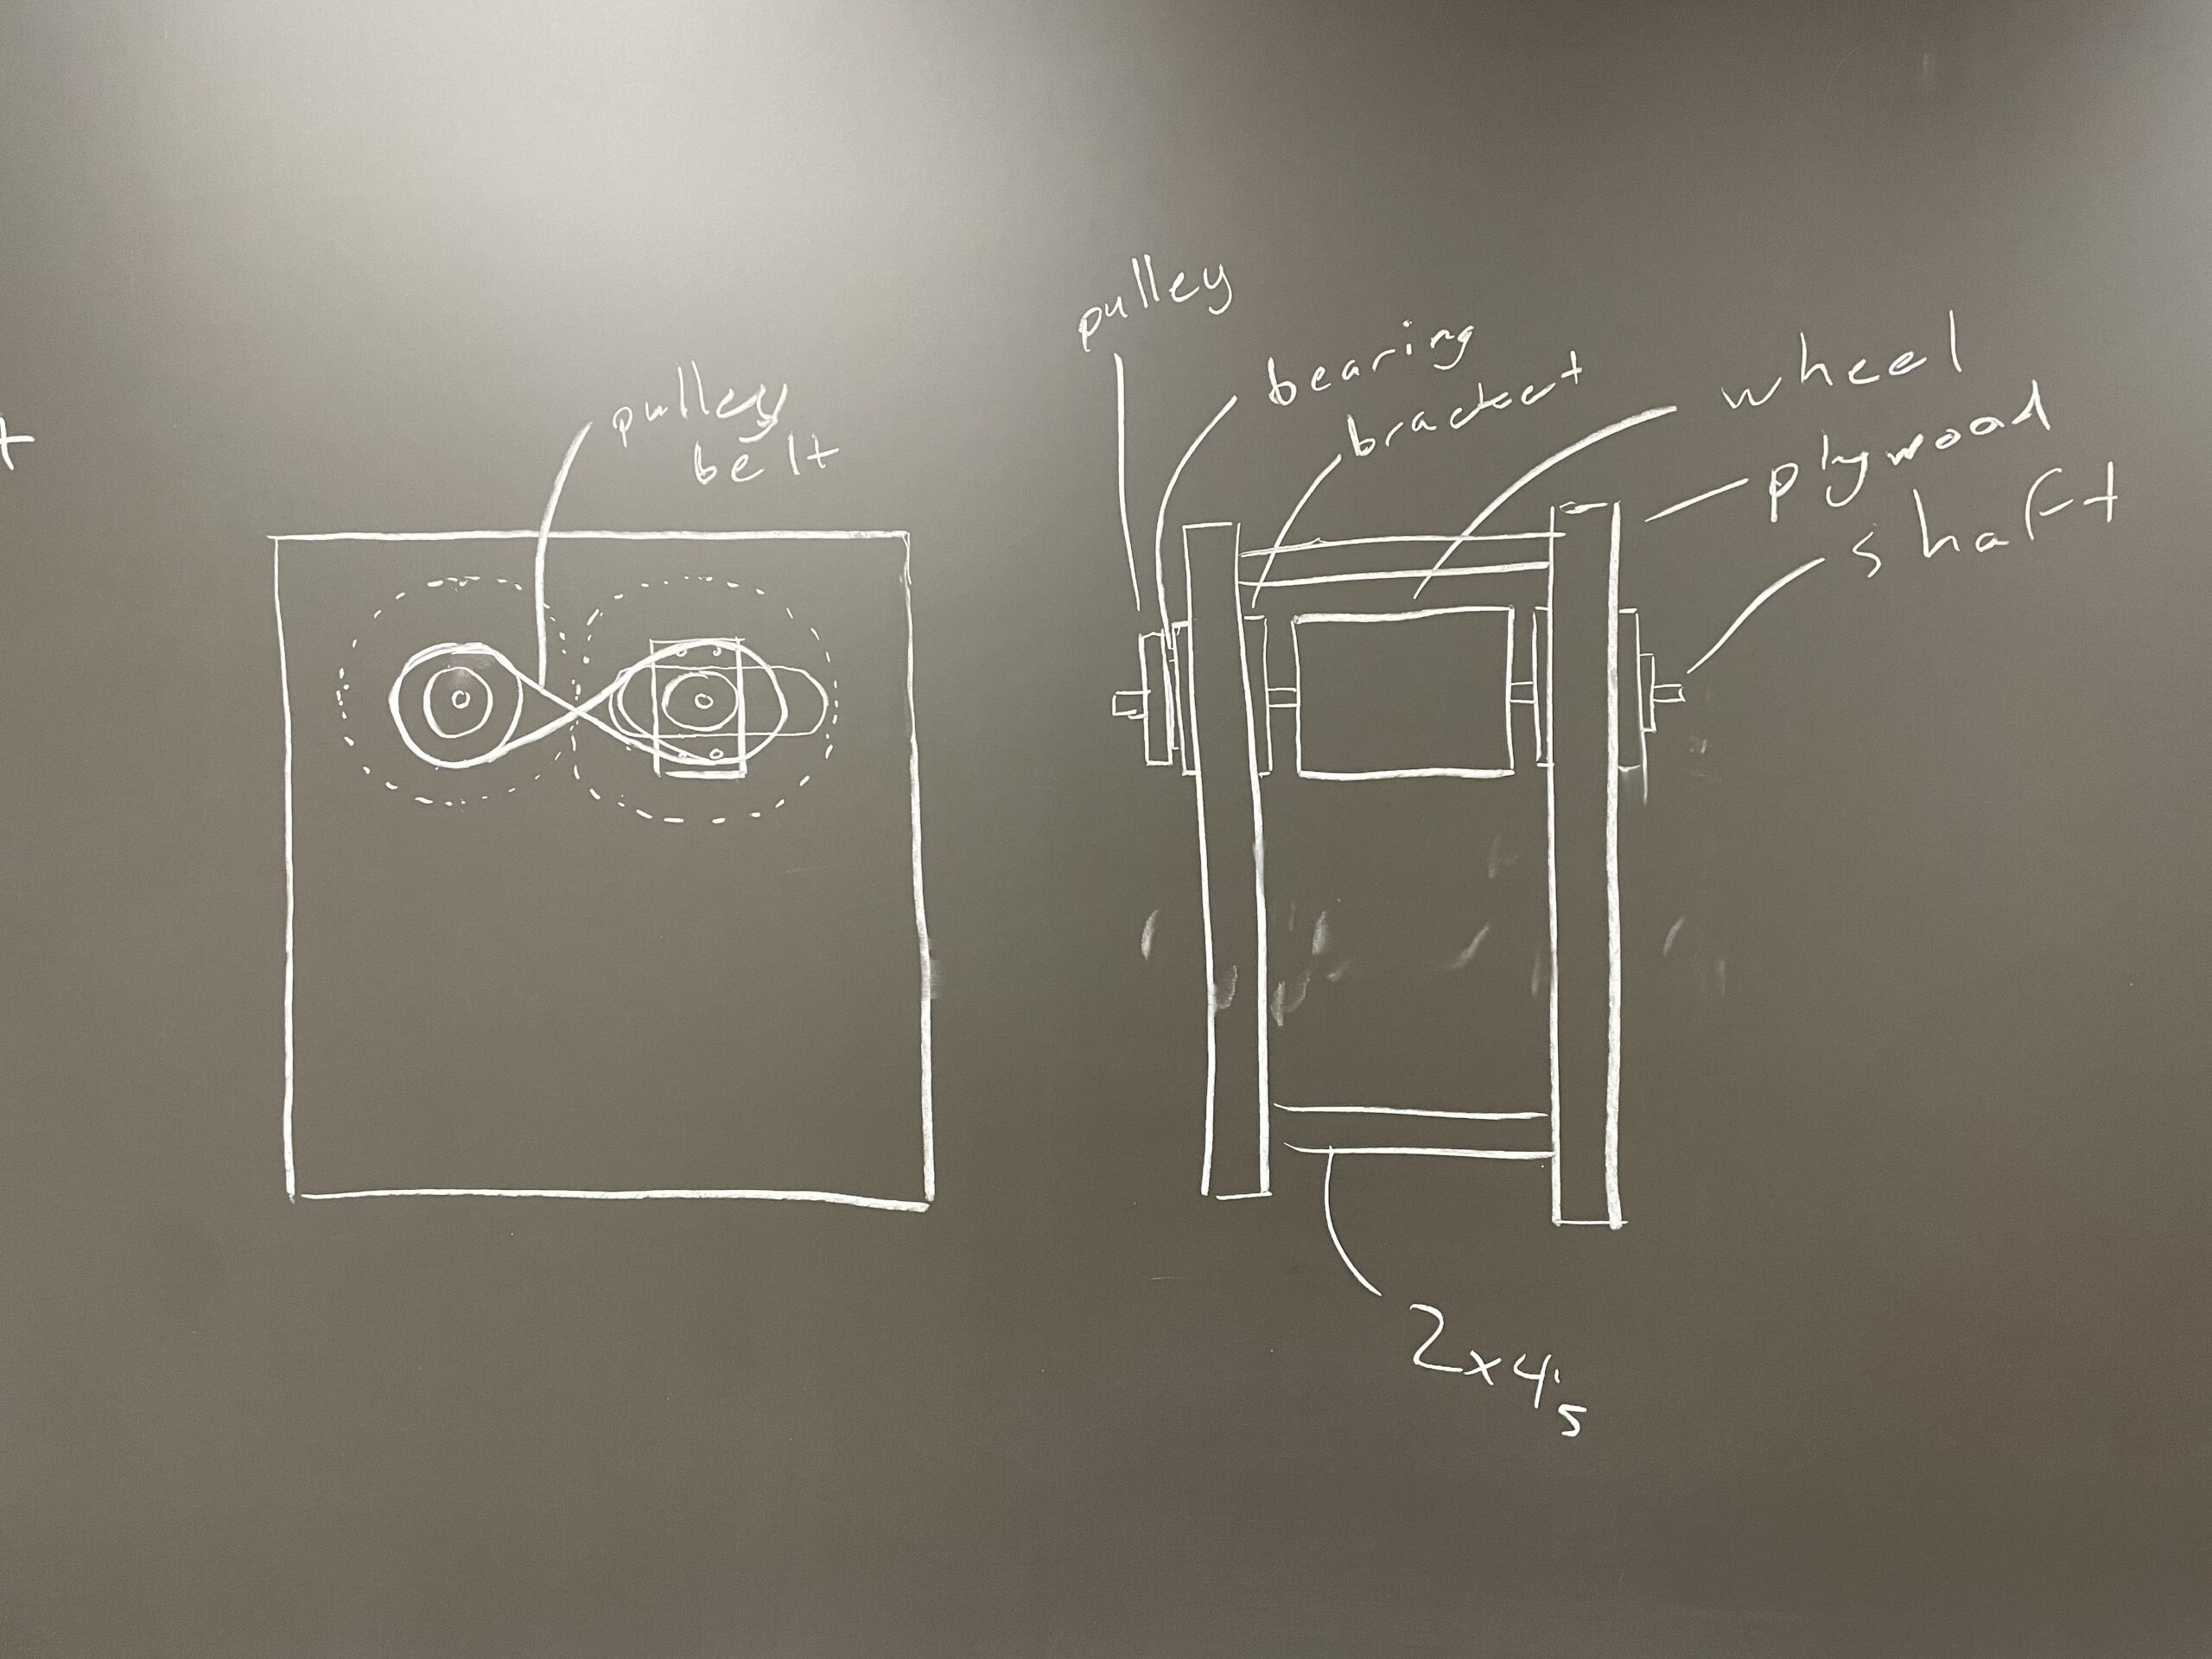 pulley
belt
pulley
bearing
bracket
wheel
plywood
shaft
2x4's